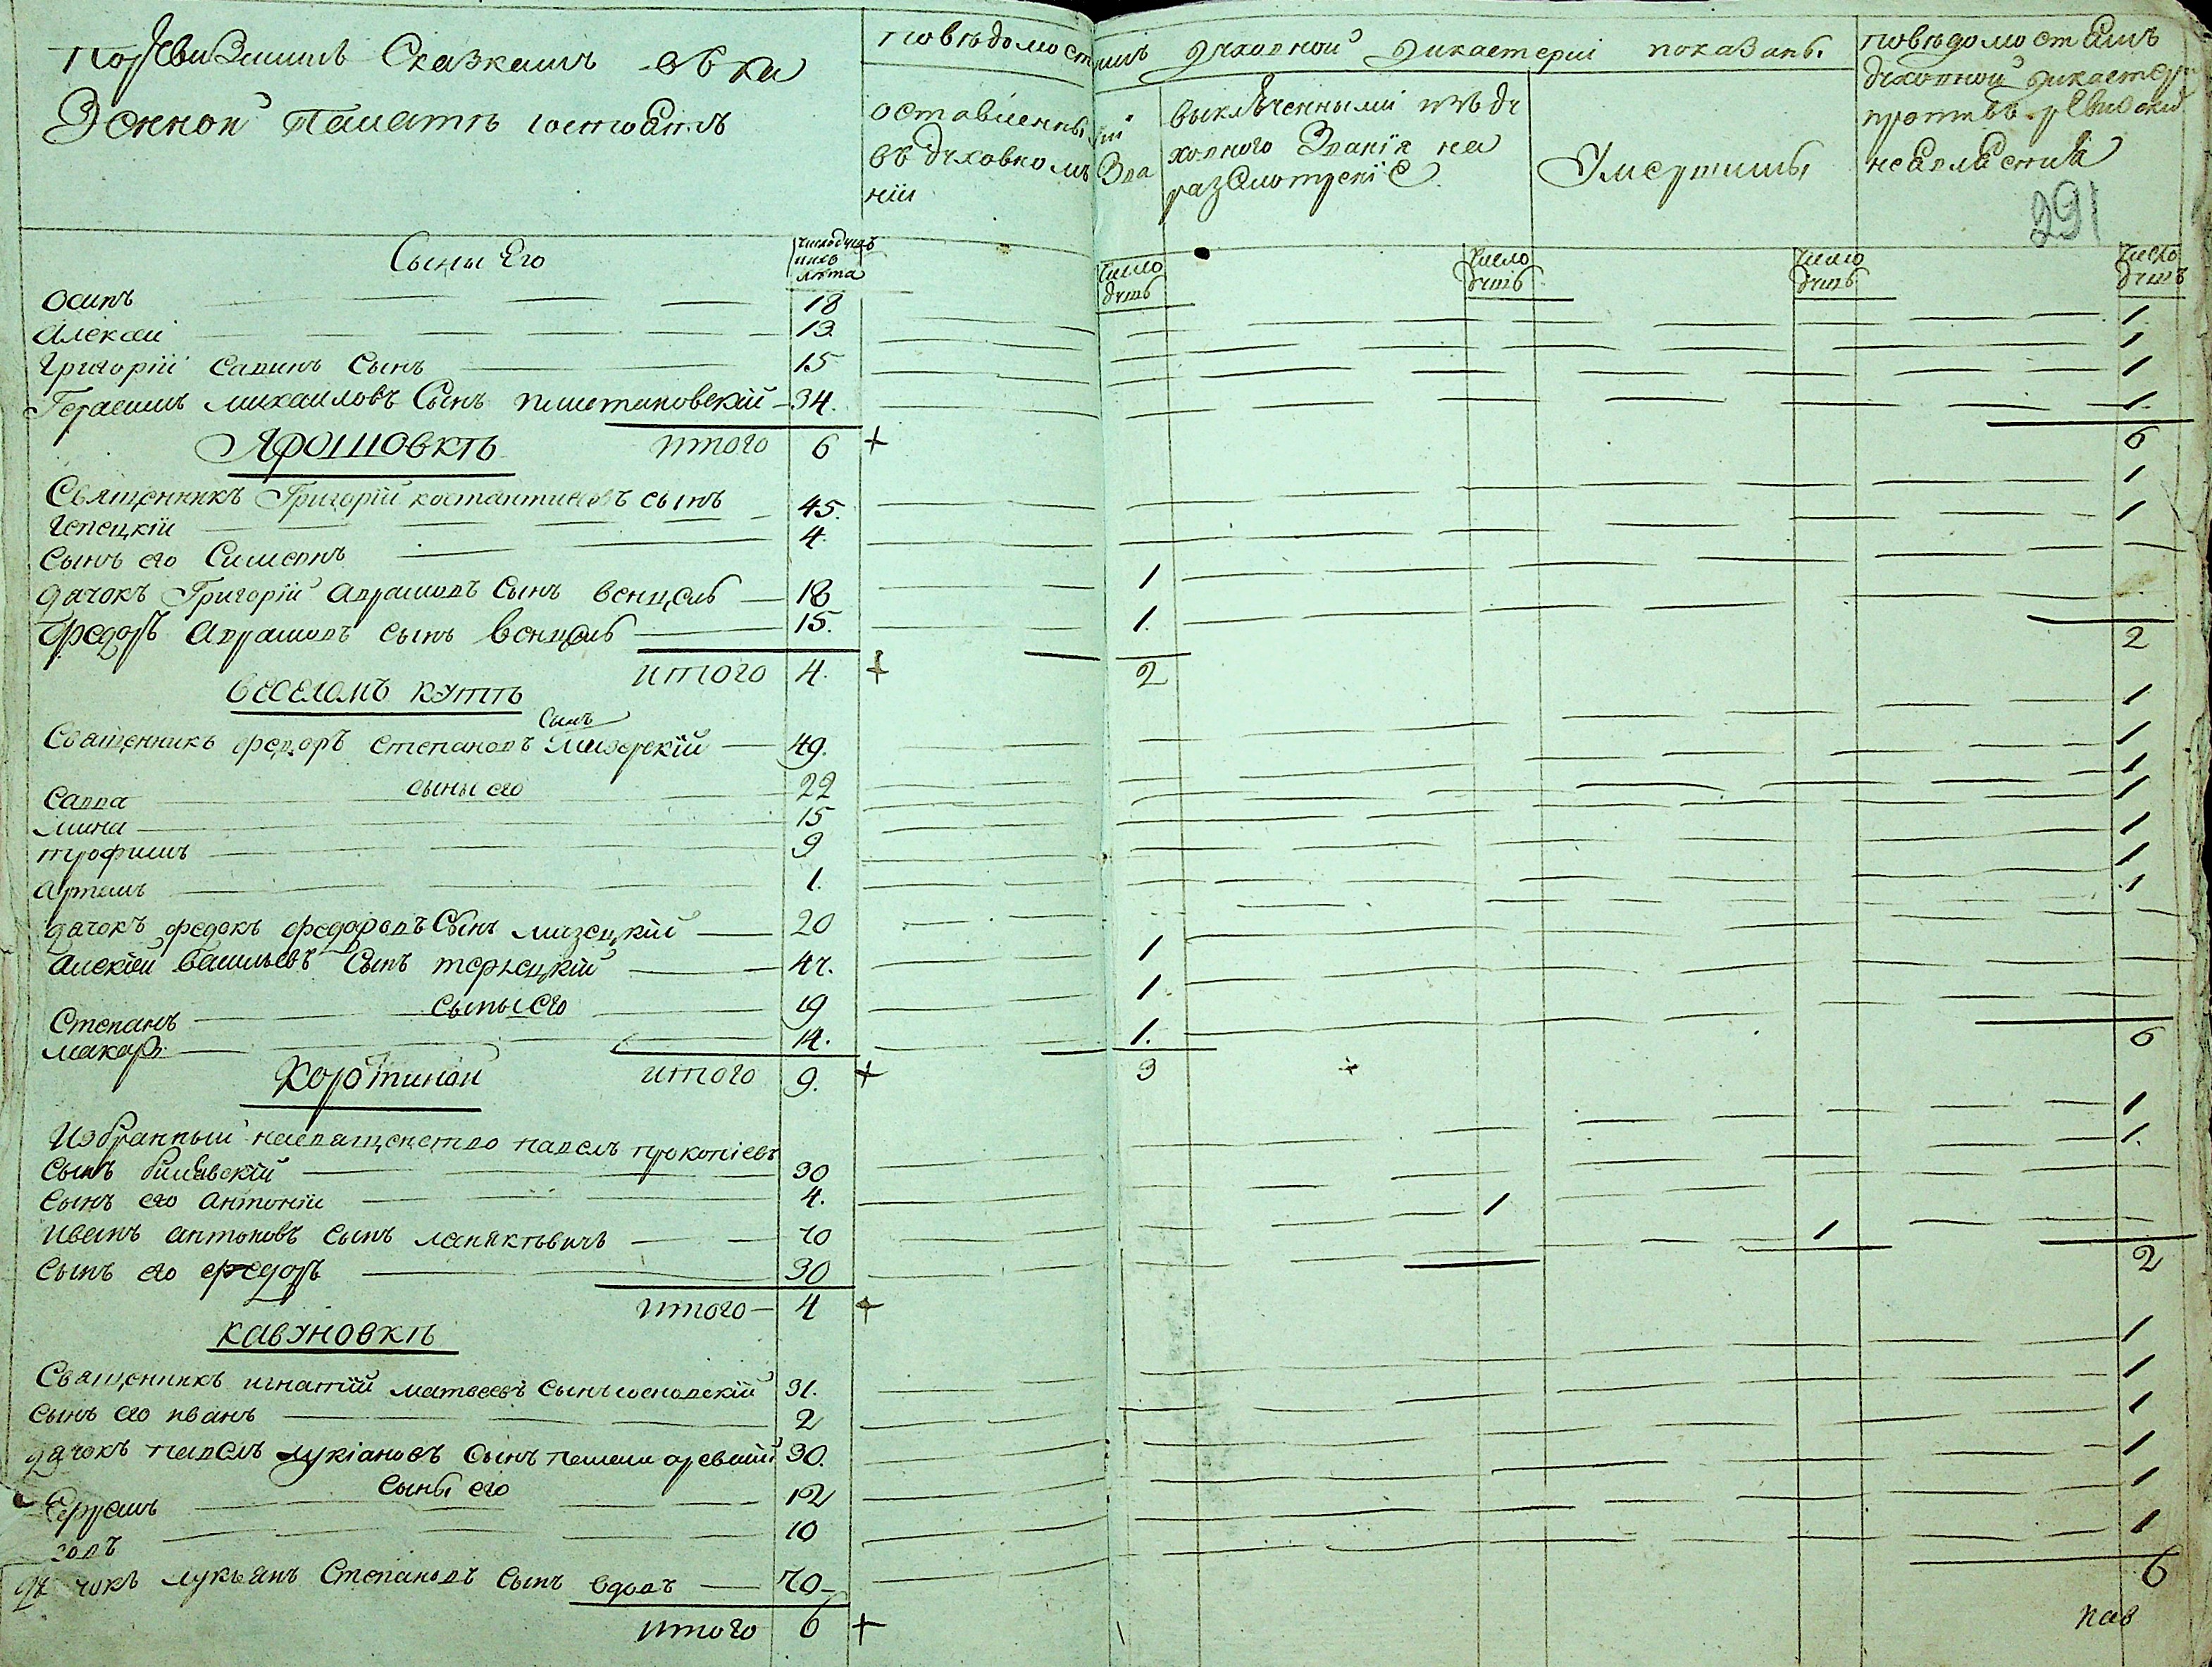 По ревизскимъ Сказкамъ въ ка
Зенной Палатѣ состоятъ
По вѣдомостямъ Духовной Дикастерiи показаны
оставленны ми
въ духовномъ Зва
нiи
выключенными изъ ду
ховного Званiя на
разсмотренiе
Умершимъ
по вѣдомостямъ
духовной дикастерiи
противъ ревизскихъ
291
Сыны Его
число душъ
ихъ
лѣта
число
душъ
число
душъ
число
душъ
число
душъ
Осипъ 18 1
Алексѣй 13 1
Григорiй Савинъ Сынъ 15 1
Герасимъ михаиловъ Сынъ 34. 1
итого 6 + 6
Ярошовкѣ
Священникъ Григорiй костантиновъ сынъ
Чепецкiй 45. 1
Сынъ его Симеонъ 4. 1
дячокъ Григорiй Аврамовъ Сынъ венцель 18 1
Федоръ Аврамовъ сынъ Венцель 15. 1.
итого 4. + 2 2
Веселомъ кутѣ
Сынъ
Священникъ федоръ степановъ Мизерскiй 49. 1
сыны его
Савва 22 1
мина 15 1
трофимъ 9 1
Артемъ 1. 1
дячокъ федоръ федоровъ Сынъ мизецкiй 20 1
Алексѣй Васильевъ Сынъ терлецкiй 47. 1
сыны его
Степанъ 19 1
макаръ 14. 1.
итого 9. + 3 6
Коротиной
Избранный насвященство павелъ прокопiевъ
Сынъ билявскiй 30 1
Сынъ его Антонiй 4. 1.
Иванъ антоновъ сынъ 70 1
Сынъ его федоръ 30 1
итого 4 + 2
кавуновкѣ
Священникъ игнатiй матвеевъ Сынъ сосновскiй 31. 1
Сынъ его иванъ 2 1
дячокъ павелъ лукiановъ Сынъ 30. 1
Сыны его
Ефремъ 12 1
10 1
дячокъ лукьянъ Степановъ Сынъ вдовъ 70 1
итого 6 + 6
пав